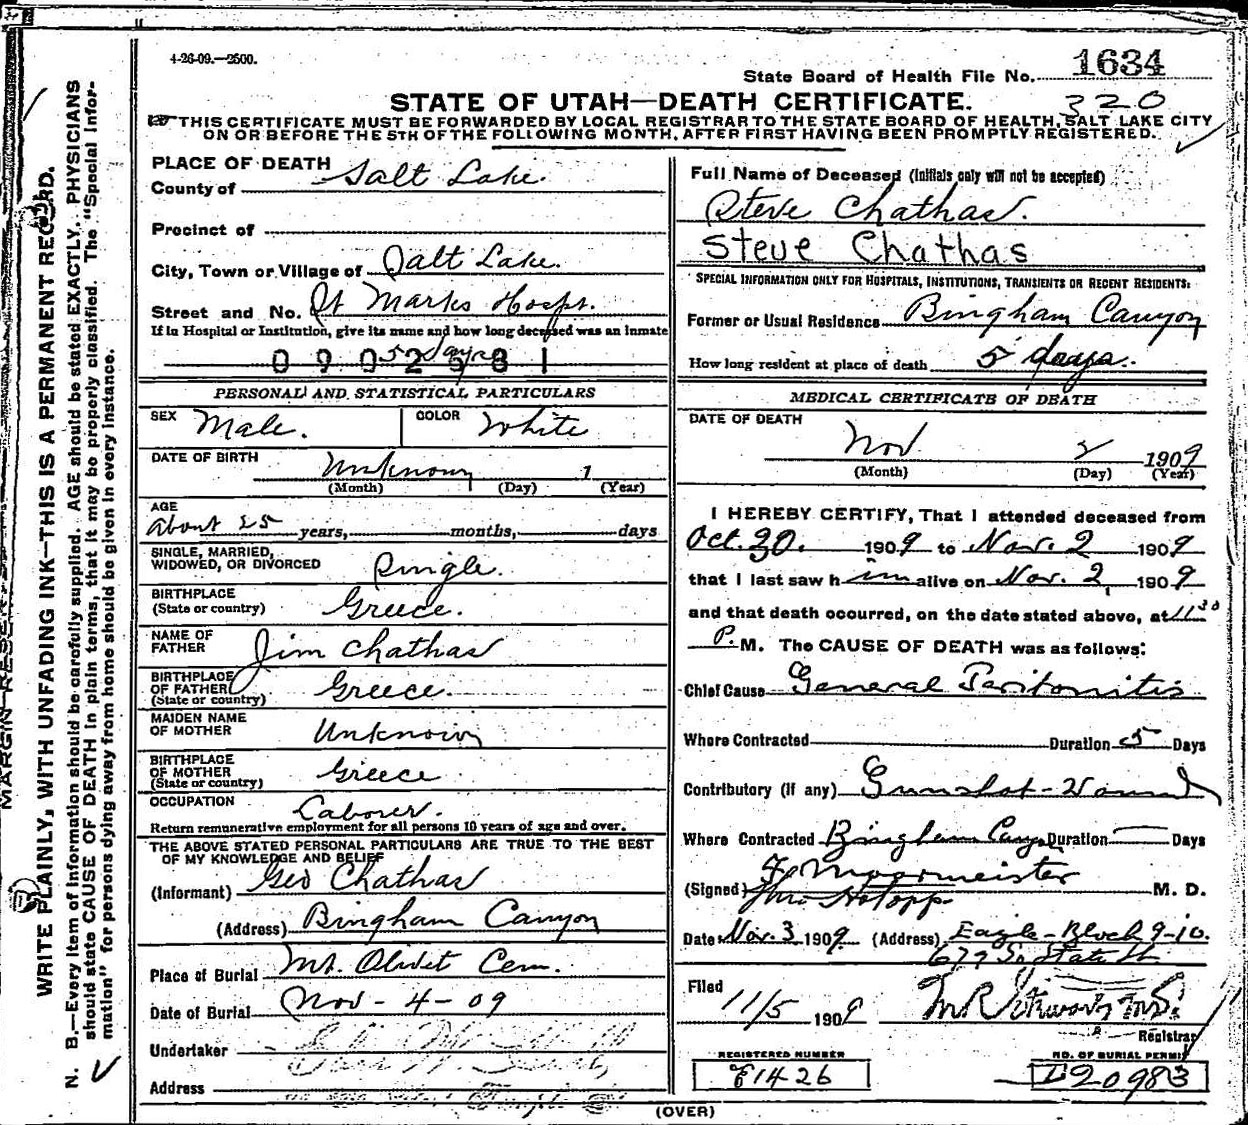 4-26-09.—2500.
State Board of Health File No. 1634
STATE OF UTAH—DEATH CERTIFICATE.
320
THIS CERTIFICATE MUST BE FORWARDED BY LOCAL REGISTRAR TO THE STATE BOARD OF HEALTH, SALT LAKE CITY
ON OR BEFORE THE 5TH OF THE FOLLOWING MONTH, AFTER FIRST HAVING BEEN PROMPTLY REGISTERED.
MARGIN RESERV
WRITE PLAINLY, WITH UNFADING INK—THIS IS A PERMANENT RECORD.
N. B.—Every item of information should be carefully supplied. AGE should be stated EXACTLY. PHYSICIANS
should state CAUSE OF DEATH in plain terms, that it may be properly classified. The "Special Infor-
mation" for persons dying away from home should be given in every instance.
PLACE OF DEATH
County of Salt Lake
Precinct of
City, Town or Village of Salt Lake.
Street and No. St Marks Hospt.
If in Hospital or Institution, give its name and how long deceased was an inmate
5 days
0902581
PERSONAL AND STATISTICAL PARTICULARS
SEX Male. COLOR White
DATE OF BIRTH Unknown 1
(Month) (Day) (Year)
AGE
About 25 years, months, days
SINGLE, MARRIED,
WIDOWED, OR DIVORCED Single.
BIRTHPLACE
(State or country) Greece.
NAME OF
FATHER Jim Chathas
BIRTHPLACE
OF FATHER
(State or country) Greece.
MAIDEN NAME
OF MOTHER Unknown
BIRTHPLACE
OF MOTHER
(State or country) Greece
OCCUPATION Laborer.
Return remunerative employment for all persons 10 years of age and over.
THE ABOVE STATED PERSONAL PARTICULARS ARE TRUE TO THE BEST
OF MY KNOWLEDGE AND BELIEF
(Informant) Geo Chathas
(Address) Bingham Canyon
Place of Burial Mt. Olivet Cem.
Date of Burial Nov-4-09
Undertaker
Address
Full Name of Deceased (Initials only will not be accepted)
Steve Chathas.
Steve Chathas
SPECIAL INFORMATION ONLY FOR HOSPITALS, INSTITUTIONS, TRANSIENTS OR RECENT RESIDENTS:
Former or Usual Residence Bingham Canyon
How long resident at place of death 5 days.
MEDICAL CERTIFICATE OF DEATH
DATE OF DEATH
Nov 2 1909
(Month) (Day) (Year)
I HEREBY CERTIFY, That I attended deceased from
Oct. 30. 1909 to Nov. 2 1909
that I last saw h im alive on Nov. 2, 1909
and that death occurred, on the date stated above, at 11 30
P. M. The CAUSE OF DEATH was as follows:
Chief Cause General Peritonitis
Where Contracted Duration 5 Days
Contributory (if any) Gunshot-Wound
Where Contracted Bingham Cany Duration — Days
(Signed) F Moormeister M. D.
Date Nov. 3 1909 (Address) Eagle-Block 9-10.
679 So State St
Filed 11/5 1909
Registrar
REGISTERED NUMBER
E1426
NO. OF BURIAL PERMIT
I20983
(OVER)